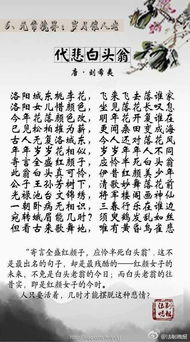 代悲白头翁
唐·刘希夷
洛阳城东桃李花，飞来飞去落谁家
洛阳女儿 颜色， 见落花长叹息
今年花落颜色改，明年花开复谁在
已见松柏摧为薪，更闻桑田变成海
古人无复洛城东，今人还对落花风
年年岁岁花相似，岁岁年年人不同
寄言全盛红颜子，应怜半死白头翁
此翁白头真可怜，伊昔红颜美少年
公子王孙芳树下，清歌妙舞落花前
光禄池台 锦绣，将军楼阁画神仙
一朝卧病无相识，三春行乐在谁边
宛转蛾眉能几时？须臾 发乱如丝
但看古来歌舞地， 有黄昏鸟雀悲
“寄言全盛红颜子，应怜半死白头翁”，这
是最出名的句子，却是最残酷的——红颜女子的
未来，不免是白头老翁的今日；而白头老翁的往
昔，即是红颜女子的今时。
人只要活着，几时才能摆脱这种悲情？
@法制晚报